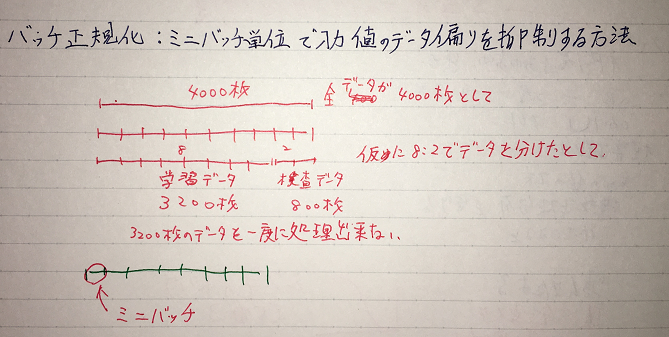 バッチ正規化：ミニバッチ単位で入力値のデータ偏りを抑制する方法
4000枚
全データが4000枚として
8 2
仮めに8:2でデータを分けたとして、
学習データ 検査データ
3200枚 800枚
3200枚のデータを一度に処理出来ない、
ミニバッチ